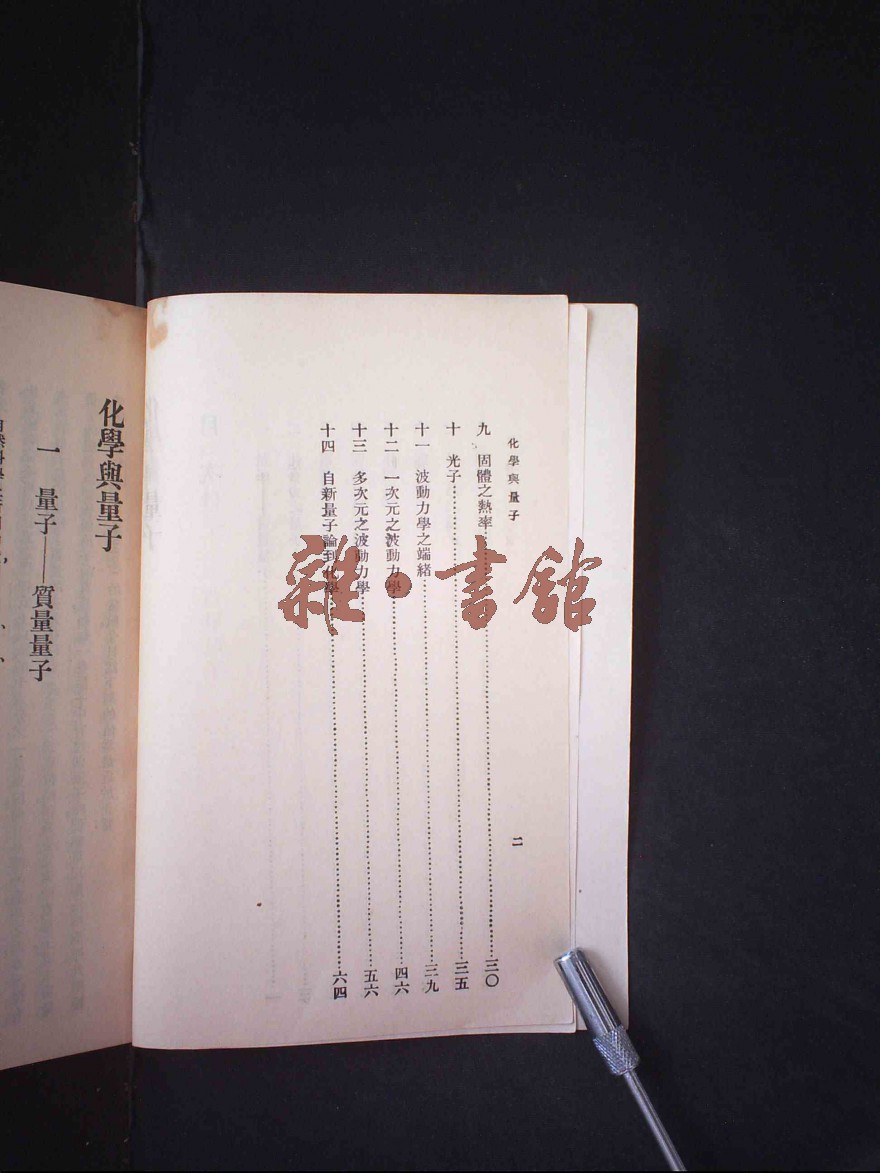 化學與量子
二
九　固體之熱率……三〇
十　光子……三五
十一　波動力學之端緒……三九
十二　一次元之波動力學……四六
十三　多次元之波動力學……五六
十四　自新量子論到化學……六四
雜·書館
化學與量子
一　量子——質量量子